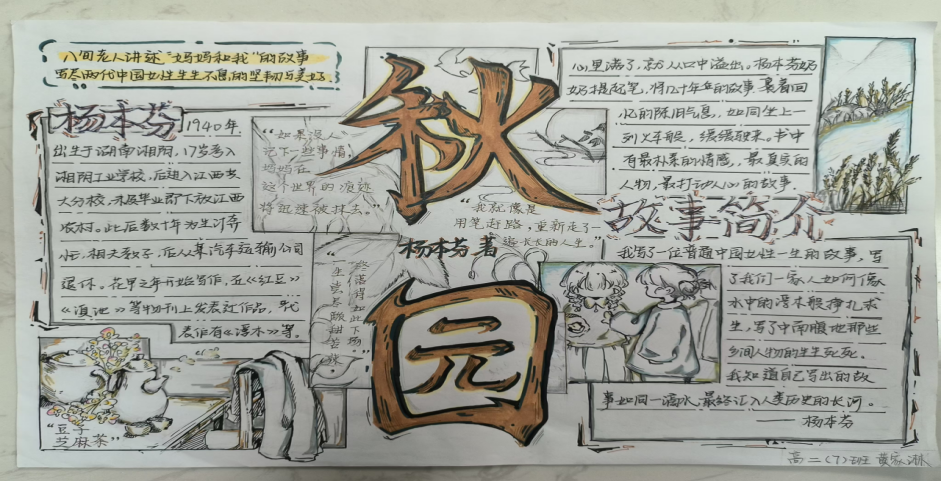 八旬老人讲述“妈妈和我”的故事
写尽两代中国女性生生不息的坚韧与美好.
杨本芬 1940年
出生于湖南湘阴，17岁考入
湘阴工业学校，后进入江西共
大分校，未及毕业即下放江西
农村。此后数十年为生计奔
忙，相夫教子，后从某汽车运输公司
退休。在早之年开始写作，在《红豆》
《滇池》等物刊上发表过作品，代
表作有《浮木》等。
“豆子
芝麻茶”
“如果没人
记下一些事情，
妈妈在
这个世界的痕迹
将迅速被抹去。”
秋
园
杨本芬 著
“我就像是
用笔赶路，重新走了一
长长的人生。”
一生尝尽酸甜苦辣
终落得如此下场。”
心里满了，就从口中溢出。杨本芬奶
奶提起笔，将几十年的故事裹着回
忆的陈旧气息，如同坐上一
列火车般，缓缓驶来，书中
有最朴素的情感，最真实的
人物，最打动人心的故事。
故事简介
我写了一位普通中国女性一生的故事，写
了我们一家人如何像
水中的浮木般挣扎求
生，写了中南腹地那些
乡间人物的生生死死。
我知道自己写出的故
事如同一滴水，最终汇入人类历史的长河。
——杨本芬
高二（7）班 黄家